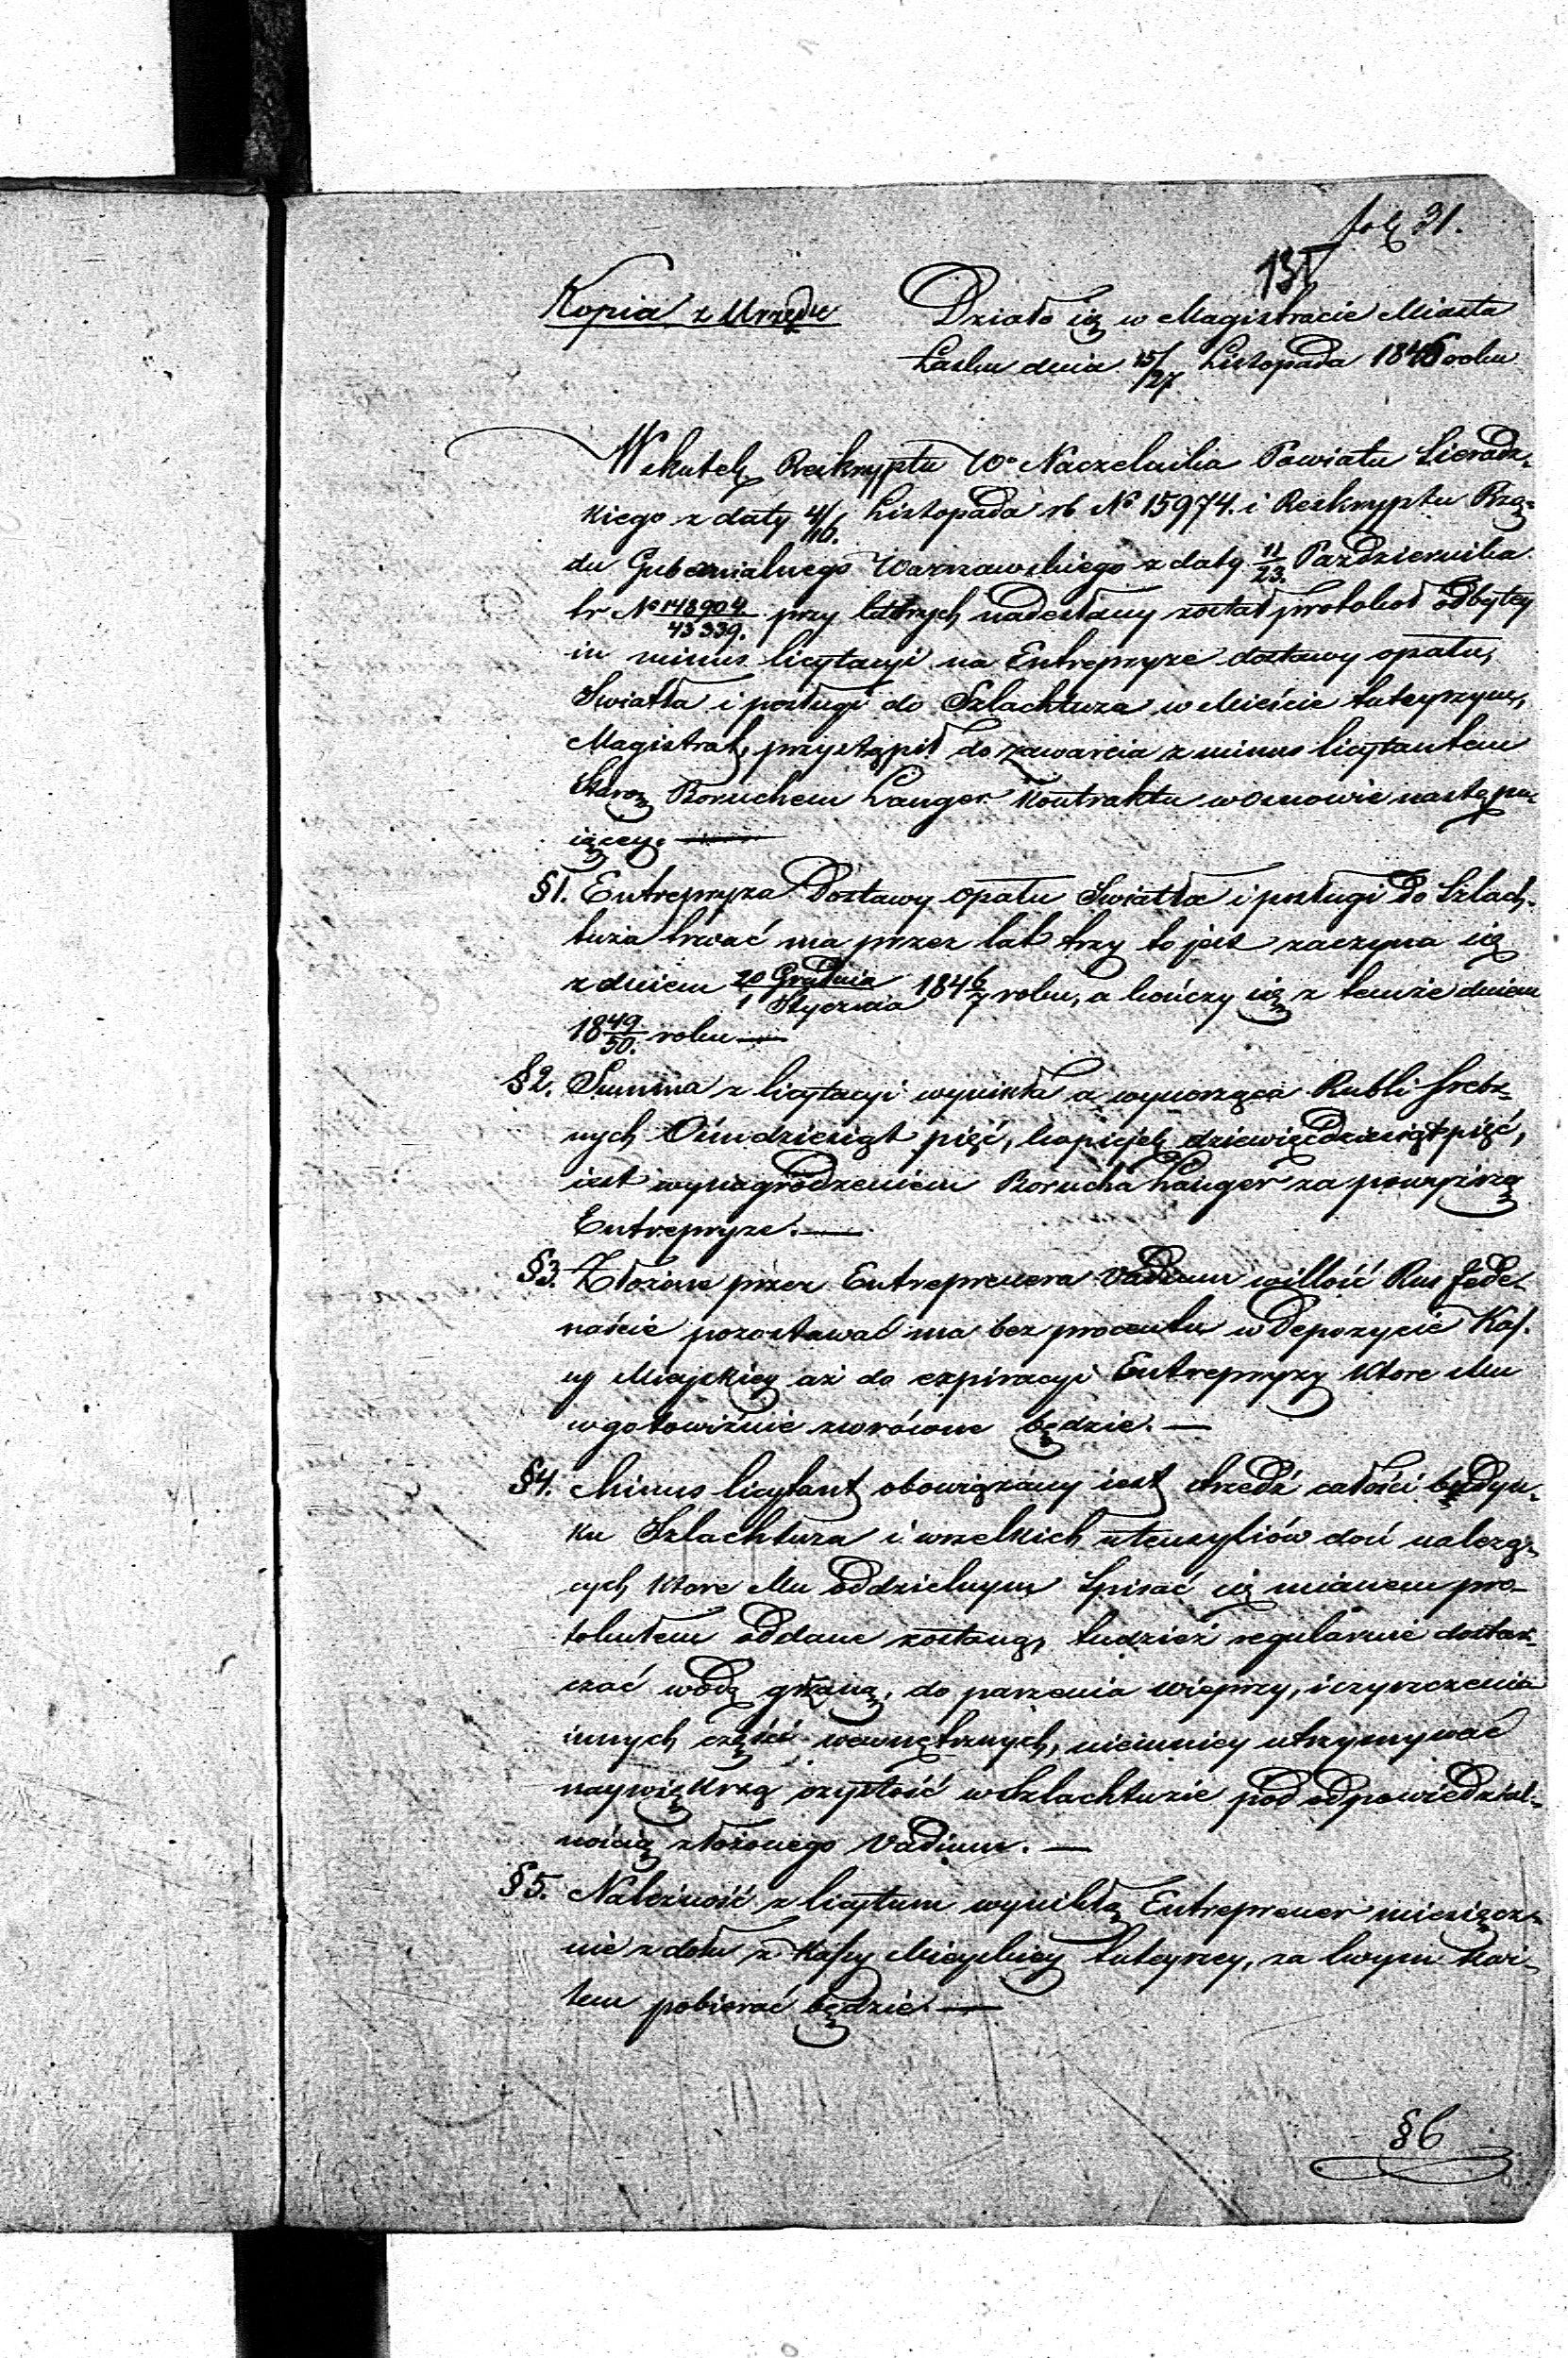 fol 31.
131
Kopia z Urzędu
Działo się w Magistracie Miasta
Łasku dnia 15/27 Listopada 1846 roku
Wskutek Reskryptu Wo Naczelnika Powiatu Sieradz-
kiego z daty 4/16. Listopada rb No 15974. i Reskryptu Rzą-
du Gubernialnego Warszawskiego z daty 11/23. Pazdziernika
br No 148904/43339. przy których nadesłany został protokoł odbytey
in minus licytacyi na Entrepryze dostawy opału,
Swiatła i posługi do Szlachtuza w Mieście tuteyszym,
Magistrat, przystąpił do zawarcia z minus licytantem
Staroz Boruchem Langer Kontraktu w osnowie nastepu-
iącey.
§1. Entrepryza Dostawy opału Swiatła i posługi do Szlach-
tuza trwać ma przez lat trzy to jest zaczyna się
z dniem 20 Grudnia/1 Stycznia 1846/7 roku, a kończy się z temże dniem
1849/50. roku
§2. Summa z licytacyi wynikła a wynosząca Rubli srebr-
nych Ośmdziesiąt pięć, kopiejek dziewięćdziesiąt pięć,
iest wynagrodzeniem Borucha Langer za powyższą
Entrepryze.
§3. Złożone przez Entreprenera Vadium wilłość Rus Jede-
naście pozostawać ma bez procentu w Depozycie Kas-
sy Mieyskiey aż do expiracyi Entrepryzy które Mu
w gotowiźnie zwrócone będzie.
§4. Minus licytant obowiązany iest strzedź całości budyn-
ku Szlachtuza i wszelkich utensyliów doń należą-
cych które Mu oddzielnym Spisać się mianem pro-
tokułem oddane zostaną, tudzież regularnie dostar-
czać wodę grzaną, do parzenia wieprzy, i czyszczenia
innych części wewnętrznych, niemniey utrzymywać
naywiększą czystość w Szlachtuzie pod odpowiedzial-
nością złożonego Vadium.
§5. Należność z licytum wynikłą Entreprener miesięcz-
nie z dołu z Kassy Mieyskiey tuteyszey, za swym kwi-
tem pobierać będzie
§6